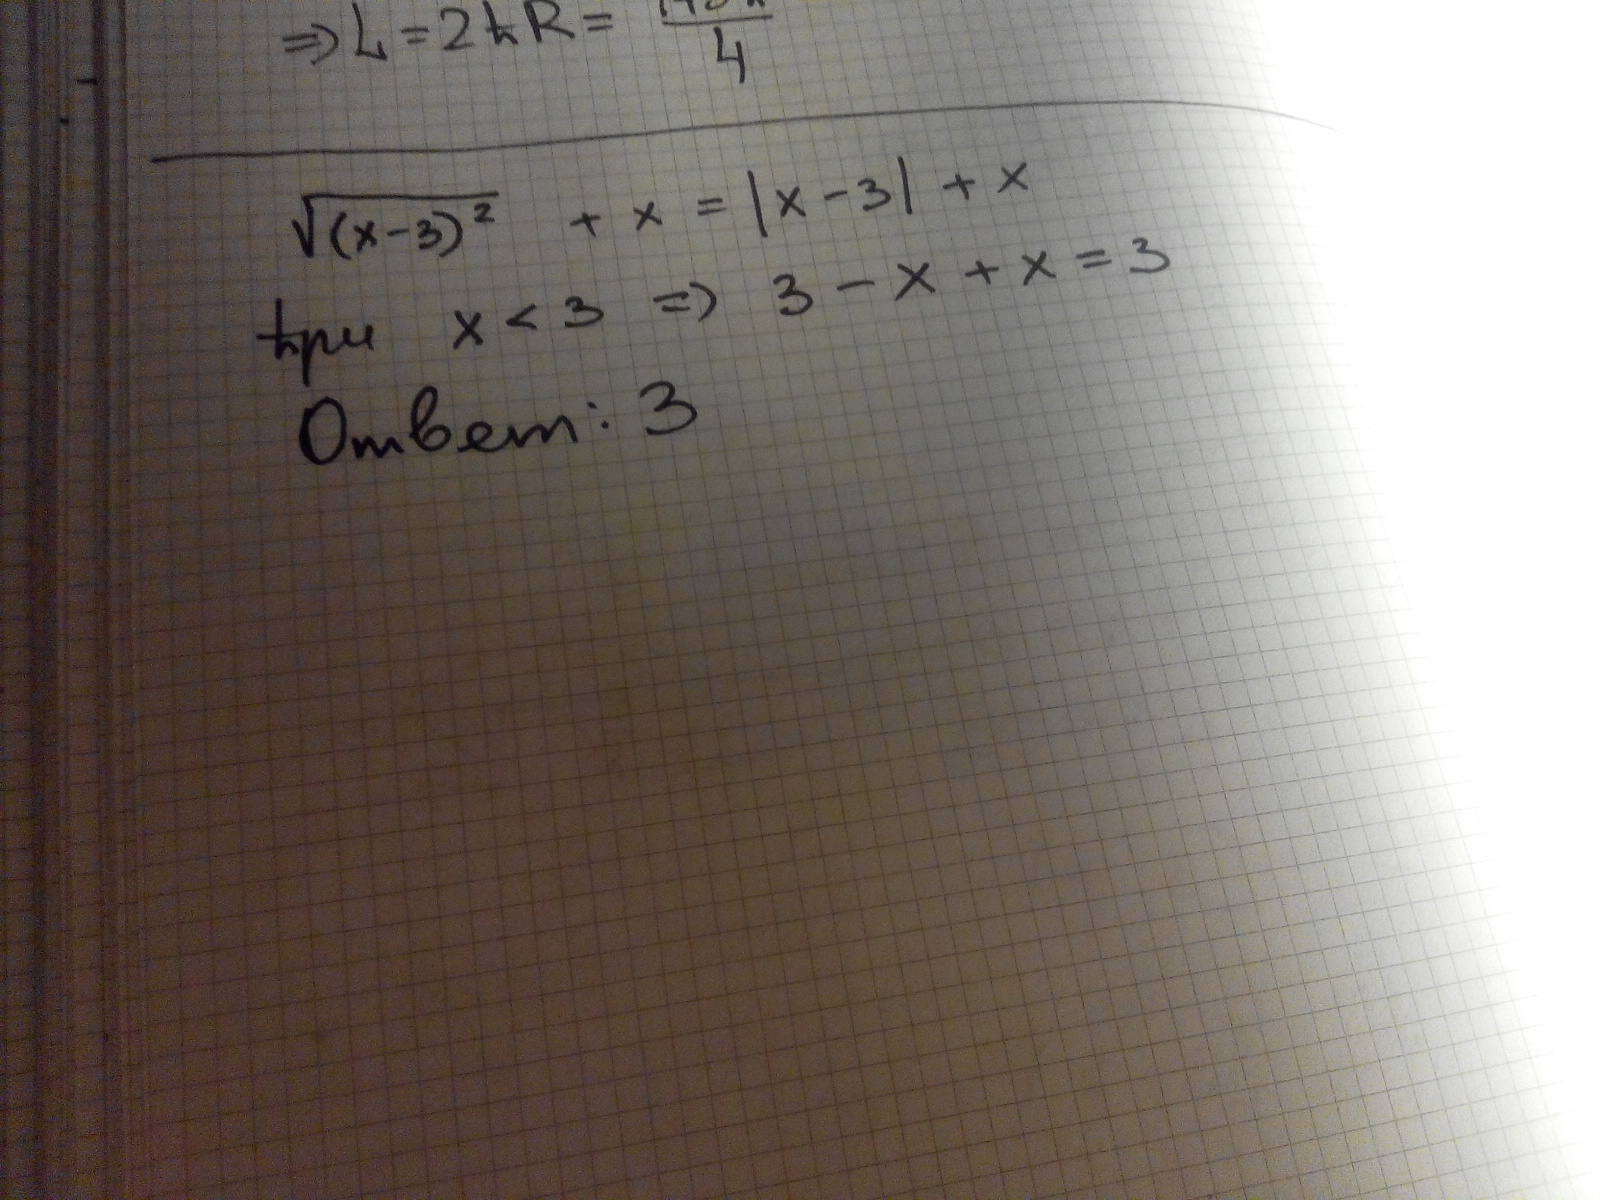 ⇒ L = 2πR = /4
√(x-3)² + x = |x-3| + x
при x < 3 ⇒ 3 - x + x = 3
Ответ: 3